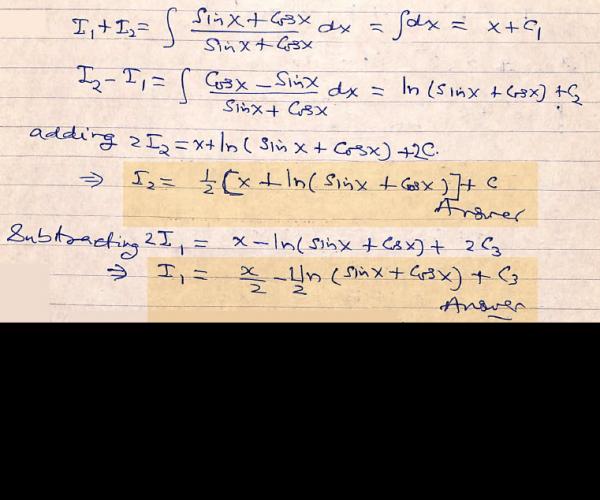 I₁ + I₂ = ∫ (Sin x + Cos x)/(Sin x + Cos x) dx = ∫dx = x + C₁
I₂ - I₁ = ∫ (Cos x - Sin x)/(Sin x + Cos x) dx = ln (Sin x + Cos x) + C₂
adding 2I₂ = x + ln (Sin x + Cos x) + 2C.
⇒ I₂ = 1/2 [x + ln (Sin x + Cos x)] + C
Answer
Subtracting 2I₁ = x - ln (Sin x + Cos x) + 2C₃
⇒ I₁ = x/2 - 1/2 ln (Sin x + Cos x) + C₃
Answer